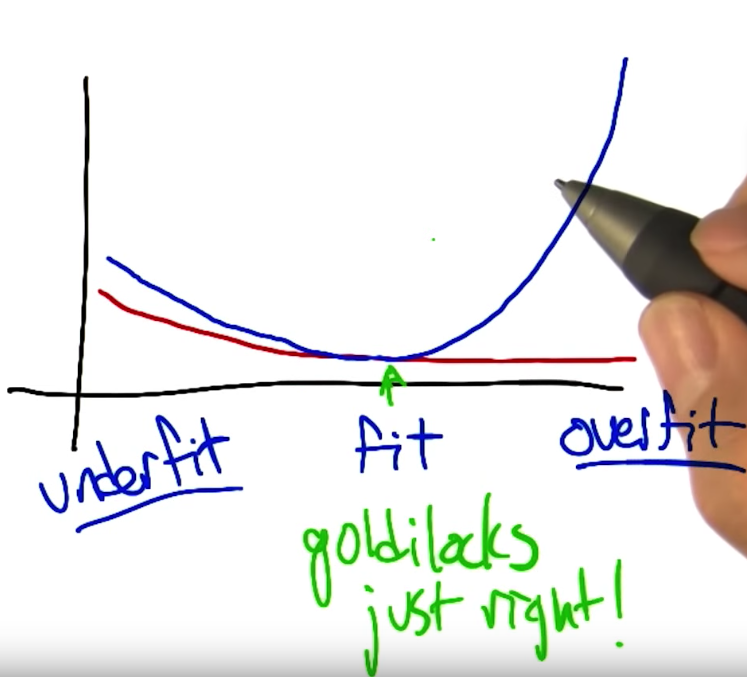 underfit fit overfit
goldilocks
just right!